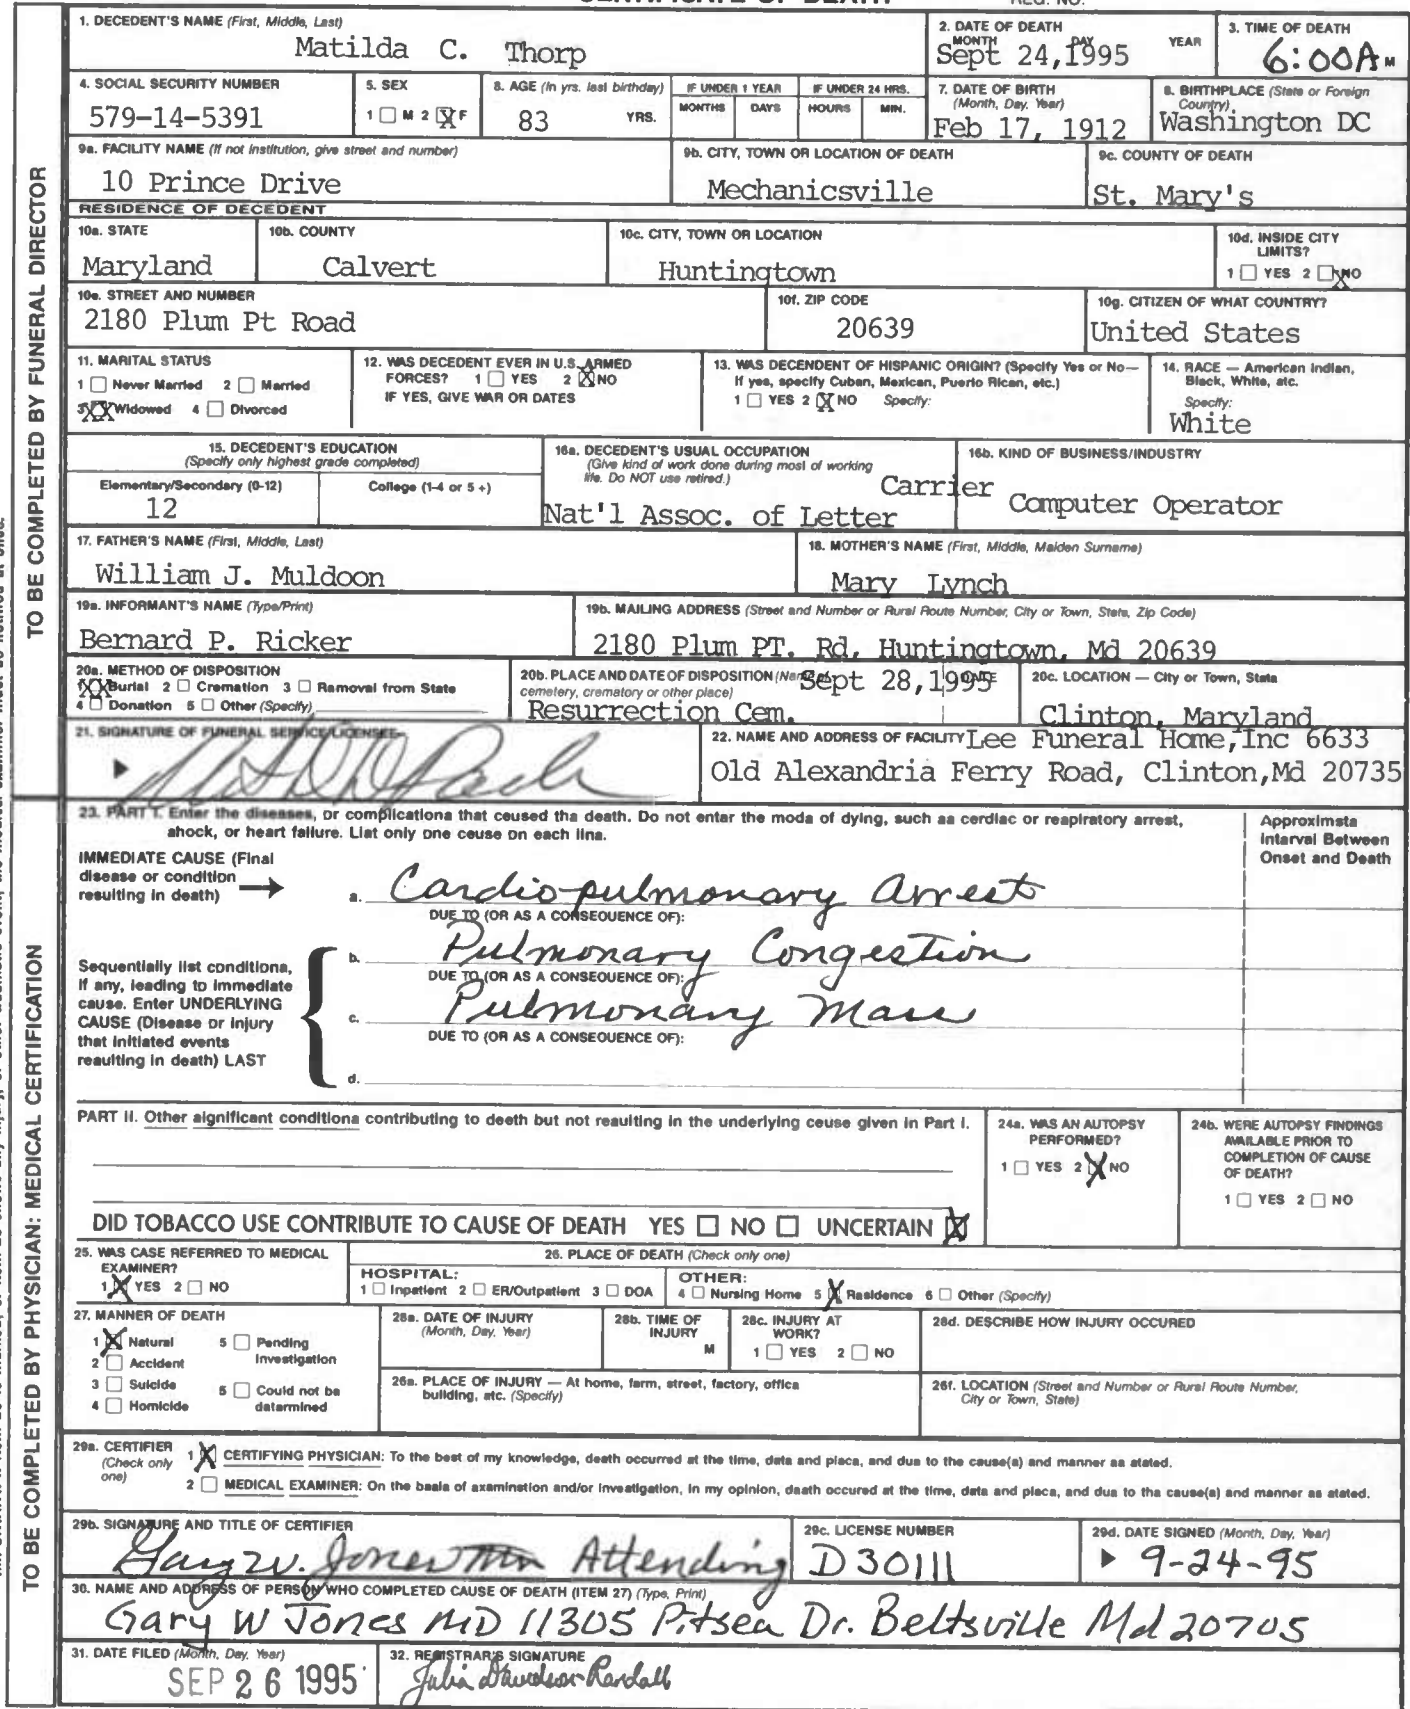 CERTIFICATE OF DEATH REG. NO.
1. DECEDENT'S NAME (First, Middle, Last)
Matilda C. Thorp
2. DATE OF DEATH
MONTH DAY YEAR
Sept 24,1995
3. TIME OF DEATH
6:00A M
4. SOCIAL SECURITY NUMBER
579-14-5391
5. SEX
1 ☐ M 2 ☒ F
8. AGE (In yrs. last birthday)
83 YRS.
IF UNDER 1 YEAR
MONTHS DAYS
IF UNDER 24 HRS.
HOURS MIN.
7. DATE OF BIRTH
(Month, Day, Year)
Feb 17, 1912
8. BIRTHPLACE (State or Foreign
Country)
Washington DC
9a. FACILITY NAME (If not institution, give street and number)
10 Prince Drive
9b. CITY, TOWN OR LOCATION OF DEATH
Mechanicsville
9c. COUNTY OF DEATH
St. Mary's
RESIDENCE OF DECEDENT
10a. STATE
Maryland
10b. COUNTY
Calvert
10c. CITY, TOWN OR LOCATION
Huntingtown
10d. INSIDE CITY
LIMITS?
1 ☐ YES 2 ☒ NO
10e. STREET AND NUMBER
2180 Plum Pt Road
10f. ZIP CODE
20639
10g. CITIZEN OF WHAT COUNTRY?
United States
11. MARITAL STATUS
1 ☐ Never Married 2 ☐ Married
3 XX Widowed 4 ☐ Divorced
12. WAS DECEDENT EVER IN U.S. ARMED
FORCES? 1 ☐ YES 2 ☒ NO
IF YES, GIVE WAR OR DATES
13. WAS DECENDENT OF HISPANIC ORIGIN? (Specify Yes or No—
If yes, specify Cuban, Mexican, Puerto Rican, etc.)
1 ☐ YES 2 ☒ NO Specify:
14. RACE — American Indian,
Black, White, etc.
Specify:
White
15. DECEDENT'S EDUCATION
(Specify only highest grade completed)
Elementary/Secondary (0-12) College (1-4 or 5 +)
12
16a. DECEDENT'S USUAL OCCUPATION
(Give kind of work done during most of working
life. Do NOT use retired.)
Carrier
Nat'l Assoc. of Letter
16b. KIND OF BUSINESS/INDUSTRY
Computer Operator
17. FATHER'S NAME (First, Middle, Last)
William J. Muldoon
18. MOTHER'S NAME (First, Middle, Maiden Surname)
Mary Lynch
19a. INFORMANT'S NAME (Type/Print)
Bernard P. Ricker
19b. MAILING ADDRESS (Street and Number or Rural Route Number, City or Town, State, Zip Code)
2180 Plum PT. Rd, Huntingtown, Md 20639
20a. METHOD OF DISPOSITION
1 XX Burial 2 ☐ Cremation 3 ☐ Removal from State
4 ☐ Donation 5 ☐ Other (Specify)
20b. PLACE AND DATE OF DISPOSITION (Name of
cemetery, crematory or other place) DATE
Sept 28,1995
Resurrection Cem.
20c. LOCATION — City or Town, State
Clinton, Maryland
21. SIGNATURE OF FUNERAL SERVICE LICENSEE
22. NAME AND ADDRESS OF FACILITY Lee Funeral Home,Inc 6633
Old Alexandria Ferry Road, Clinton,Md 20735
TO BE COMPLETED BY FUNERAL DIRECTOR
23. PART I. Enter the diseases, or complications that caused the death. Do not enter the mode of dying, such as cardiac or respiratory arrest,
shock, or heart failure. List only one cause on each line.
Approximate
Interval Between
Onset and Death
IMMEDIATE CAUSE (Final
disease or condition
resulting in death) →
a. Cardio-pulmonary Arrest
DUE TO (OR AS A CONSEQUENCE OF):
b. Pulmonary Congestion
DUE TO (OR AS A CONSEQUENCE OF):
c. Pulmonary Mass
DUE TO (OR AS A CONSEQUENCE OF):
d.
Sequentially list conditions,
if any, leading to immediate
cause. Enter UNDERLYING
CAUSE (Disease or injury
that initiated events
resulting in death) LAST
PART II. Other significant conditions contributing to death but not resulting in the underlying cause given in Part I.
24a. WAS AN AUTOPSY
PERFORMED?
1 ☐ YES 2 ☒ NO
24b. WERE AUTOPSY FINDINGS
AVAILABLE PRIOR TO
COMPLETION OF CAUSE
OF DEATH?
1 ☐ YES 2 ☐ NO
DID TOBACCO USE CONTRIBUTE TO CAUSE OF DEATH YES ☐ NO ☐ UNCERTAIN ☒
25. WAS CASE REFERRED TO MEDICAL
EXAMINER?
1 ☒ YES 2 ☐ NO
26. PLACE OF DEATH (Check only one)
HOSPITAL:
1 ☐ Inpatient 2 ☐ ER/Outpatient 3 ☐ DOA
OTHER:
4 ☐ Nursing Home 5 ☒ Residence 6 ☐ Other (Specify)
27. MANNER OF DEATH
1 ☒ Natural 5 ☐ Pending
Investigation
2 ☐ Accident
3 ☐ Suicide 6 ☐ Could not be
determined
4 ☐ Homicide
28a. DATE OF INJURY
(Month, Day, Year)
28b. TIME OF
INJURY
M
28c. INJURY AT
WORK?
1 ☐ YES 2 ☐ NO
28d. DESCRIBE HOW INJURY OCCURED
28e. PLACE OF INJURY — At home, farm, street, factory, office
building, etc. (Specify)
28f. LOCATION (Street and Number or Rural Route Number,
City or Town, State)
29a. CERTIFIER
(Check only
one)
1 ☒ CERTIFYING PHYSICIAN: To the best of my knowledge, death occurred at the time, date and place, and due to the cause(s) and manner as stated.
2 ☐ MEDICAL EXAMINER: On the basis of examination and/or investigation, in my opinion, death occured at the time, date and place, and due to the cause(s) and manner as stated.
29b. SIGNATURE AND TITLE OF CERTIFIER
Gary W. Jones MD Attending
29c. LICENSE NUMBER
D30111
29d. DATE SIGNED (Month, Day, Year)
9-24-95
30. NAME AND ADDRESS OF PERSON WHO COMPLETED CAUSE OF DEATH (ITEM 27) (Type, Print)
Gary W Jones MD 11305 Pitsea Dr. Beltsville Md 20705
31. DATE FILED (Month, Day, Year)
SEP 26 1995
32. REGISTRAR'S SIGNATURE
Julia Davidson-Randall
TO BE COMPLETED BY PHYSICIAN: MEDICAL CERTIFICATION